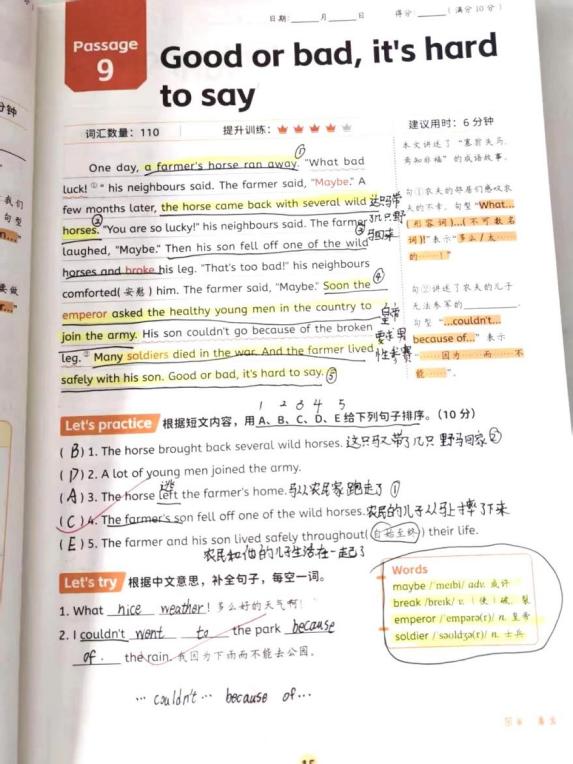 日期：____月____日 得分：____（满分10分）
Passage
9
Good or bad, it's hard
to say
词汇数量：110 提升训练：
建议用时：6分钟
①
One day, a farmer's horse ran away. "What bad
luck! ①" his neighbours said. The farmer said, "Maybe." A
few months later, the horse came back with several wild 这只马带
② horses. "You are so lucky!" his neighbours said. The farmer 了几只野
laughed, "Maybe." Then his son fell off one of the wild ③ 马回来
horses and broke his leg. "That's too bad!" his neighbours
comforted(安慰) him. The farmer said, "Maybe." Soon the ④
emperor asked the healthy young men in the country to 皇帝
join the army. His son couldn't go because of the broken 要求男
leg. ② Many soldiers died in the war. And the farmer lived 性参赛
safely with his son. Good or bad, it's hard to say. ⑤
本文讲述了“塞翁失马，
焉知非福”的成语故事。
句①农夫的邻居们感叹农
夫的不幸。句型“What...
（形容词）...（不可数名
词）!”表示“多么/太……
的……！”
句②讲述了农夫的儿子
无法参军的________。
句型“...couldn't...
because of...”表示
“……因为……而……不
能……”。
1 2 3 4 5
Let's practice 根据短文内容，用A、B、C、D、E给下列句子排序。（10分）
( B ) 1. The horse brought back several wild horses. 这只马又带了几只野马回家②
( D ) 2. A lot of young men joined the army.
逃
( A ) 3. The horse left the farmer's home. 马从农民家跑走了①
( C ) 4. The farmer's son fell off one of the wild horses. 农民的儿子从马上摔了下来
( E ) 5. The farmer and his son lived safely throughout(自始至终) their life.
农民和他的儿子生活在一起了
Let's try 根据中文意思，补全句子，每空一词。
1. What nice weather! 多么好的天气啊！
2. I couldn't went to the park because
of the rain. 我因为下雨而不能去公园。
... couldn't ... because of ...
Words
maybe /ˈmeɪbi/ adv. 或许
break /breɪk/ v. （使）破，裂
emperor /ˈempərə(r)/ n. 皇帝
soldier /ˈsəʊldʒə(r)/ n. 士兵
15